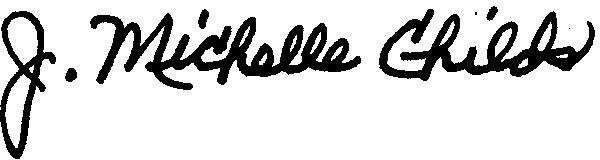 J. Michelle Childs